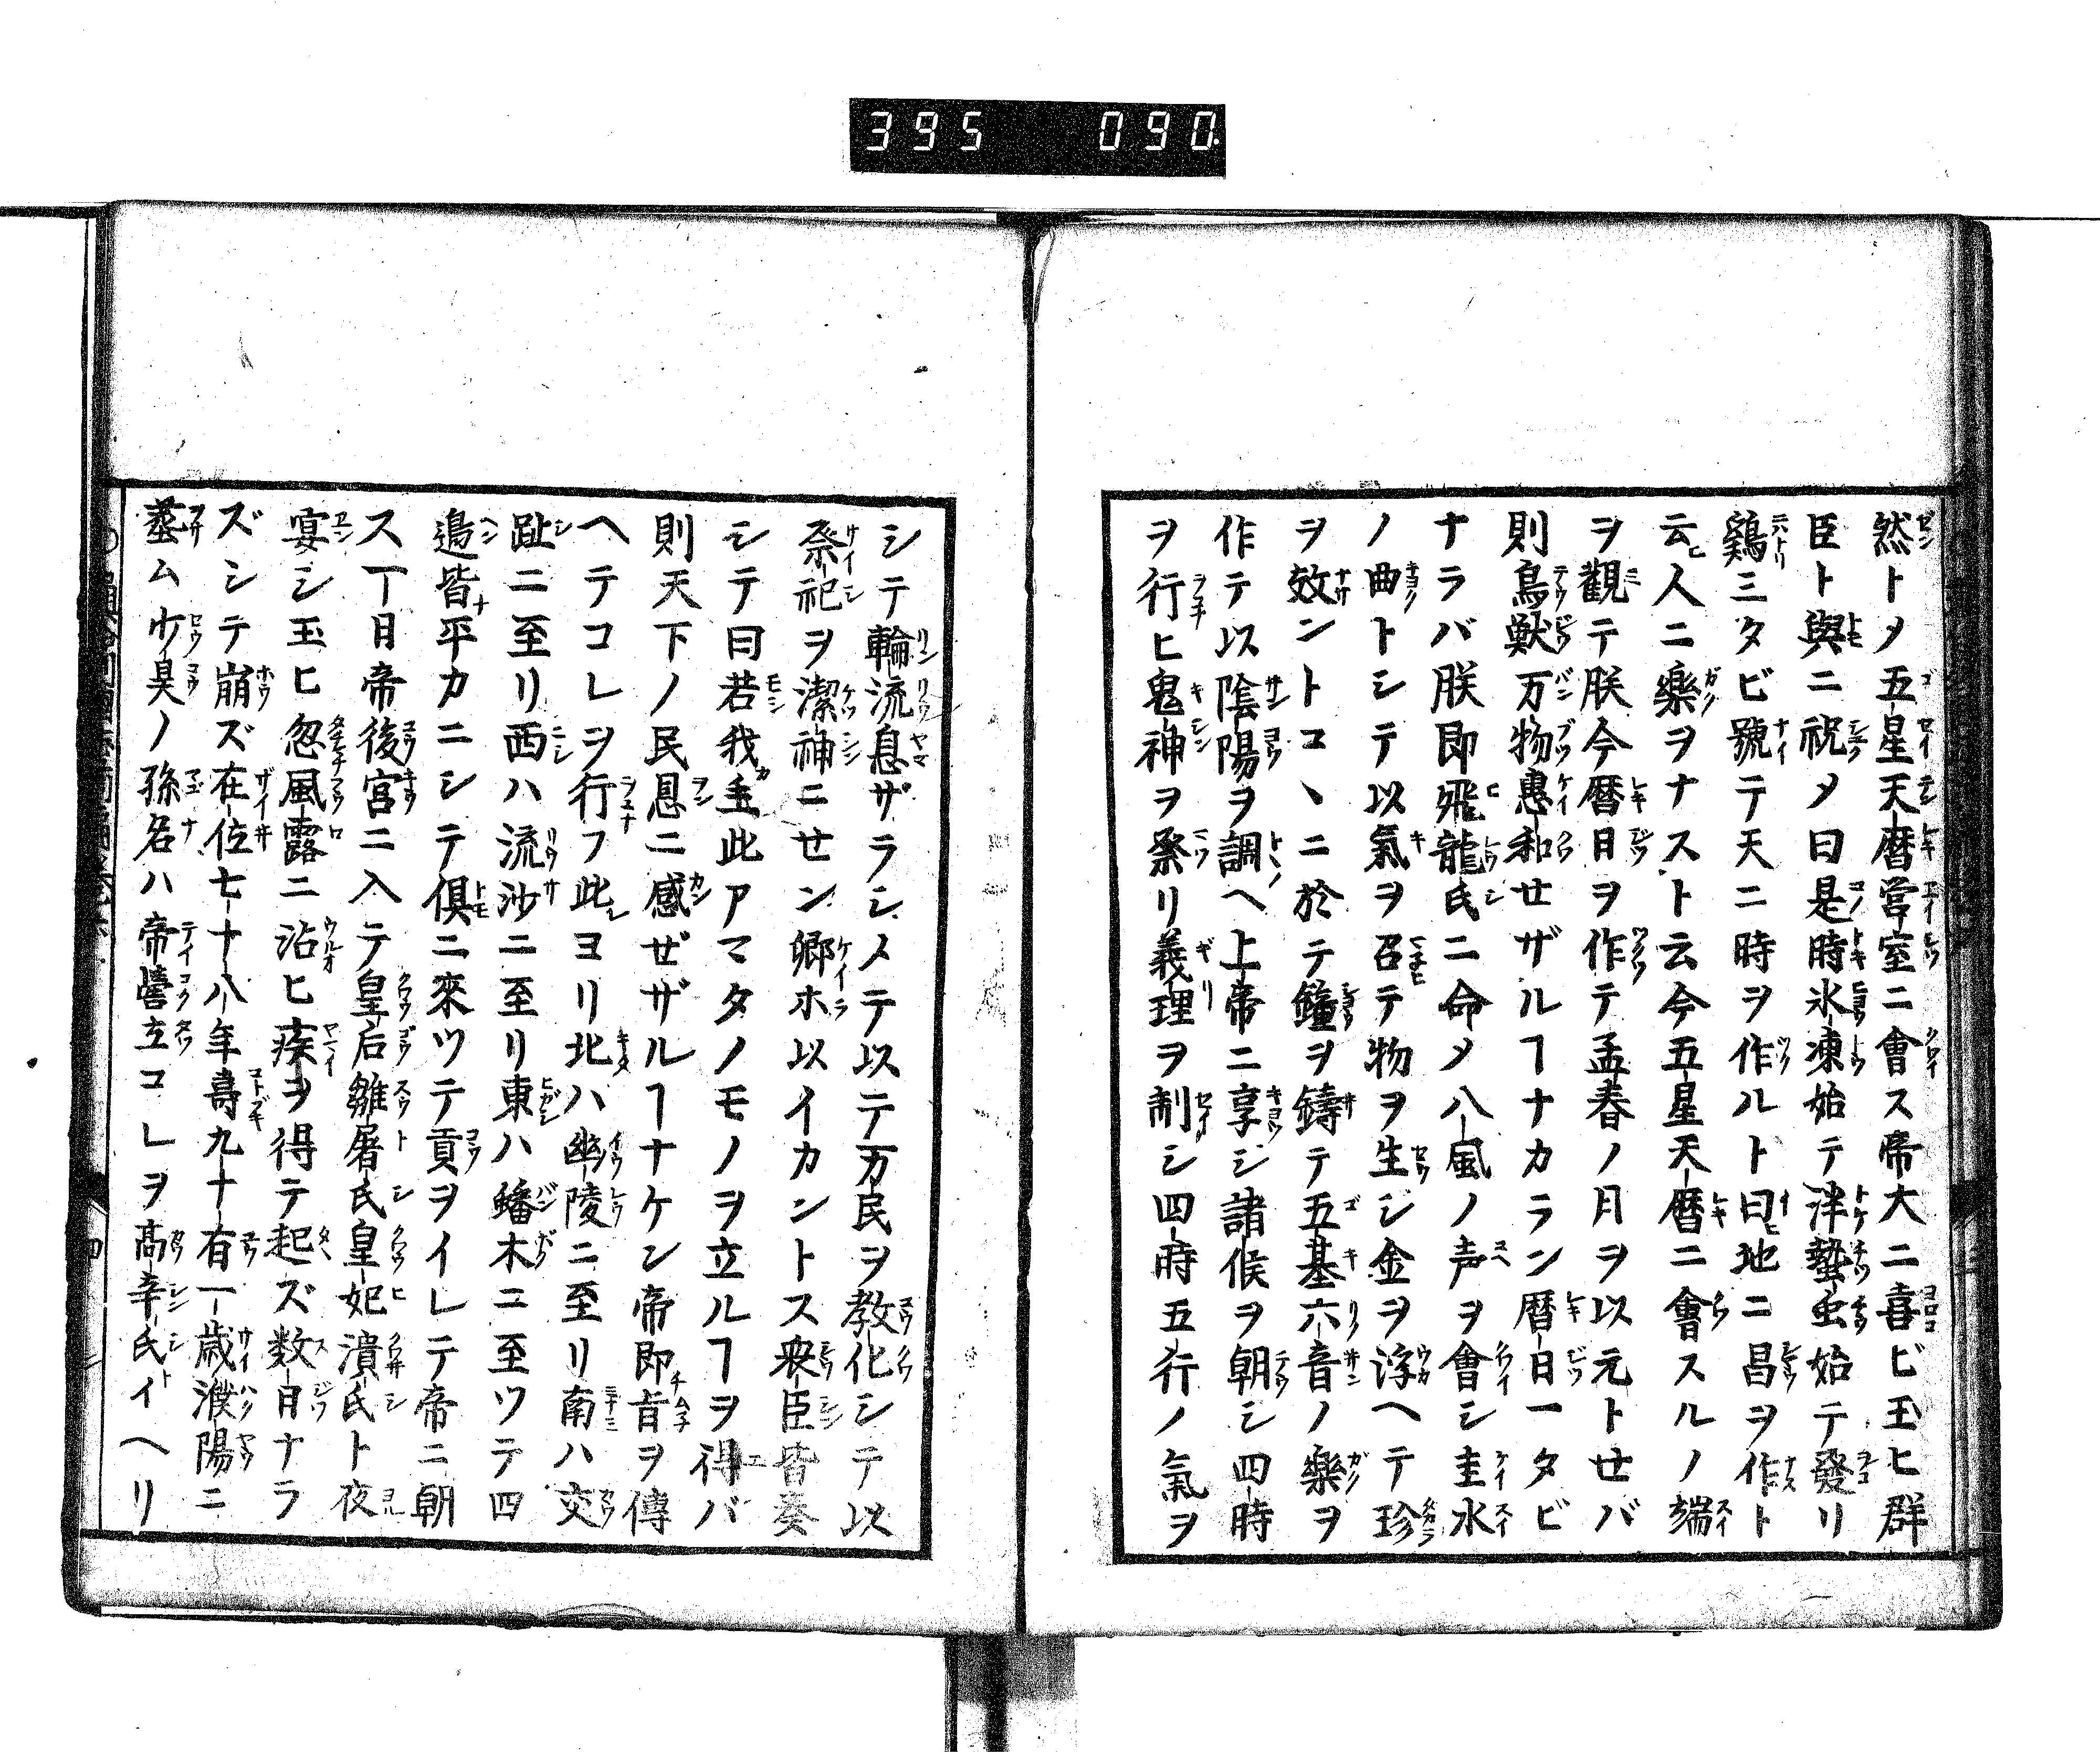 395 090
然トメ五星天暦営室ニ會ス帝大ニ喜ビ玉ヒ群
臣ト與ニ祝メ曰是時氷凍始テ泮蟄虫始テ發リ
鷄三タビ號テ天ニ時ヲ作ルト曰地ニ昌ヲ作ト
云人ニ樂ヲナスト云今五星天暦ニ會スルノ端
ヲ觀テ朕今暦日ヲ作テ孟春ノ月ヲ以元トせバ
則鳥獣万物惠和せザルヿナカラン暦日一タビ
ナラバ朕即飛龍氏ニ命メ八風ノ声ヲ會シ圭水
ノ曲トシテ以氣ヲ召テ物ヲ生シ金ヲ浮ヘテ珍
ヲ效ントコヽニ於テ鐘ヲ鑄テ五基六音ノ樂ヲ
作テ以陰陽ヲ調ヘ上帝ニ享シ諸侯ヲ朝シ四時
ヲ行ヒ鬼神ヲ祭リ義理ヲ制シ四時五行ノ氣ヲ
シテ輪流息ザラシメテ以テ万民ヲ教化シテ以
祭祀ヲ潔神ニせン卿ホ以イカントス衆臣皆奏
シテ曰若我主此アマタノモノヲ立ルヿヲ得バ
則天下ノ民恩ニ感ぜザルヿナケン帝即旨ヲ傳
ヘテコレヲ行フ此ヨリ北ハ幽陵ニ至リ南ハ交
趾ニ至リ西ハ流沙ニ至リ東ハ蟠木ニ至ツテ四
邉皆平カニシテ倶ニ來ツテ貢ヲイレテ帝ニ朝
ス丁日帝後宮ニ入テ皇后雛屠氏皇妃潰氏ト夜
宴シ玉ヒ忽風露ニ沾ヒ疾ヲ得テ起ズ数日ナラ
ズシテ崩ズ在位七十八年壽九十有一歳濮陽ニ
葢ム少昊ノ孫名ハ帝嚳立コレヲ高辛氏トイヘリ